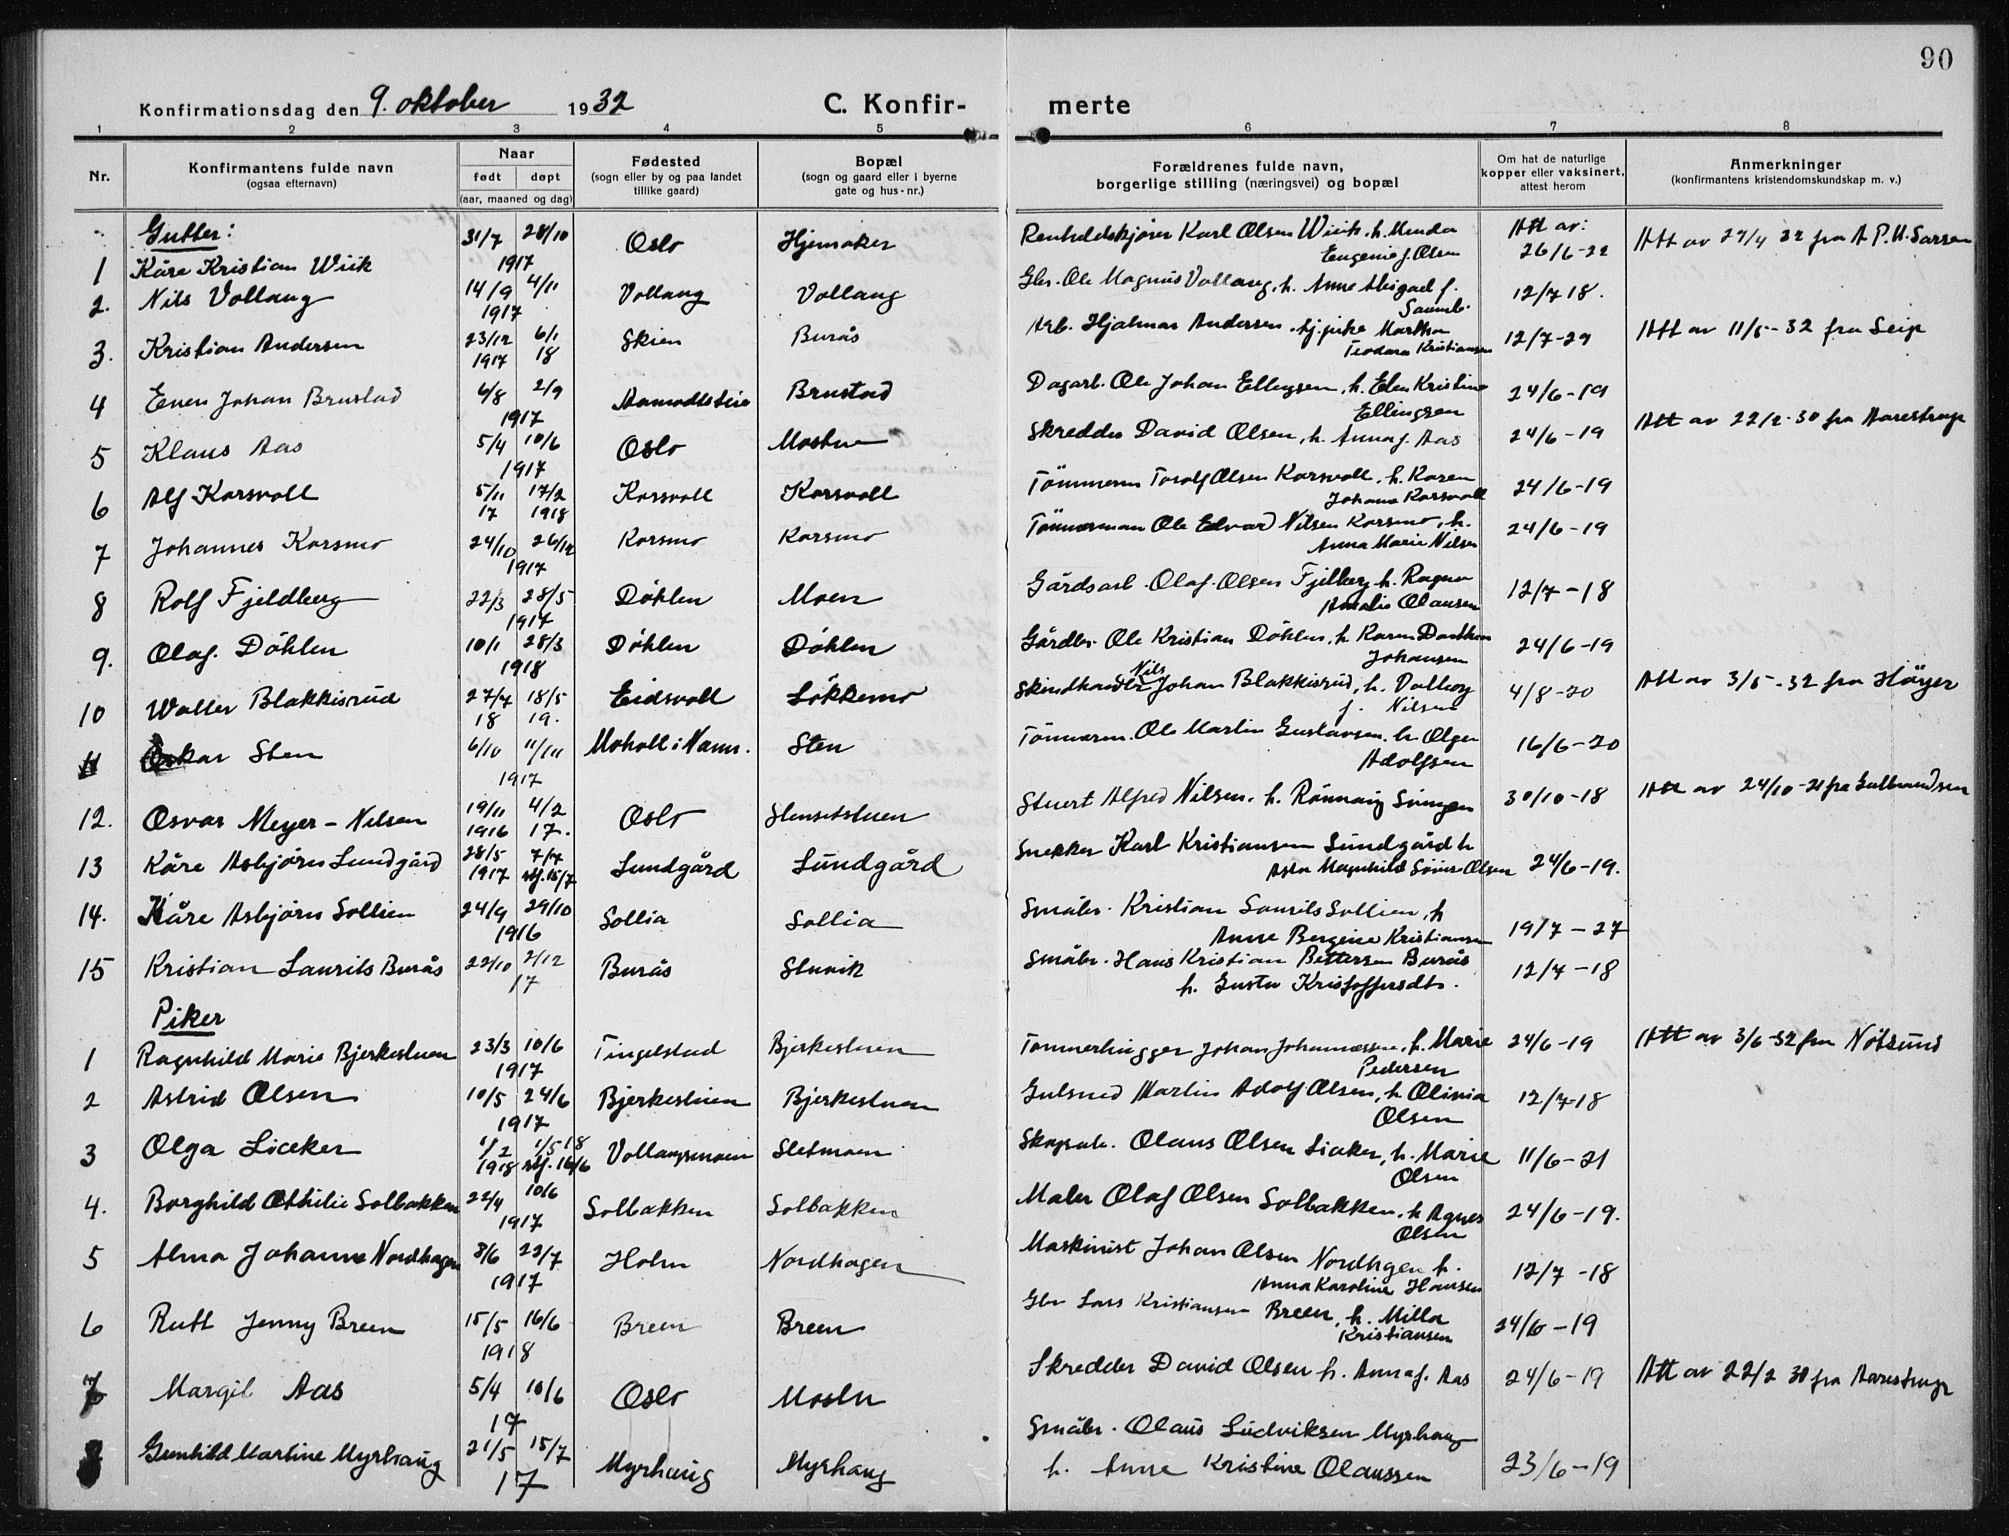 90
Konfirmationsdag den 9. oktober 1932 C. Konfir- merte
1 2 3 4 5 6 7 8
Nr. Konfirmantens fulde navn (ogsaa efternavn) Naar født døpt (aar, maaned og dag) Fødested (sogn eller by og paa landet tillike gaard) Bopæl (sogn og gaard eller i byerne gate og hus-nr.) Forældrenes fulde navn, borgerlige stilling (næringsvei) og bopæl Om hat de naturlige kopper eller vaksinert, attest herom Anmerkninger (konfirmantens kristendomskundskap m. v.)
Gutter:
1 Kåre Kristian Wiik 31/7 28/10 1917 Oslo Hjemaker Renholdskjører Karl Olsen Wiik h. Eugenie f. Olsen Att av: 26/6-22 Att av 27/4 32 fra
2. Nils Vollaug 14/9 4/11 1917 Vollaug Vollaug Gbr. Ole Magnus Vollaug, h. Anne Abigael f. 12/7 18.
3. Kristian Andersen 23/12 1917 6/1 18 Skien Burås Arb. Hjalmar Andersen. Martha Teodora Kristiansen 12/7-29 Att av 11/5-32 fra Seip
4 Even Johan Brustad 6/8 2/9 1917 Brustad Dagarb. Ole Johan Ellingsen, h. Elen Kristine Ellingsen 24/6-19
5 Klaus Aas 5/4 10/6 1917 Oslo Mostu Skredder David Olsen, h. Anna f. Aas 24/6-19 Att av 22/2-30 fra Aarestrup
6 Alf Korsvoll 5/11 17 17/2 1918 Korsvoll Korsvoll Tömmerm Torolf Olsen Korsvoll, h. Karen Johana Korsvoll 24/6-19
7 Johannes Korsmo 24/10 26/12 1917 Korsmo Korsmo Tömmerman Ole Edvard Nilsen Korsmo, h. Anna Marie Nilsen 24/6-19
8 Rolf Fjeldberg 22/3 28/5 1917 Döhlen Moen Gårdsarb. Olaf Olsen Fjelberg h. Ragna Amalie Olausen 12/7-18
9. Olaf Döhlen 10/1 28/3 1918 Döhlen Döhlen Gårdbr. Ole Kristian Döhlen, h. Karen Johansen 24/6-19
10 Walter Blakkisrud 27/7 18 18/5 19. Eidsvoll Løkkemo Skindhandler Nils Johan Blakkisrud, h. Valborg f. Nilsen 4/8-20 Att av 3/5-32 fra Höyer
11 Oskar Sten 6/10 11/11 1917 Moholt i Nann. Sten Tömmerm. Ole Martin Gustavsen. h Olga Adolfsen 16/6-20
12. Osvar Meyer-Nilsen 19/11 1916 4/2 17. Oslo Stensetstuen Stuert Alfred Nilsen. h. Rönnaug Svingen 30/10-18 Att av 24/10-31 fra Gulbrandsen
13 Kåre Asbjørn Lundgård 28/5 1917 7/7 stf. 15/7 Lundgård Lundgård Snekker Karl Kristiansen Lundgård h Asta Magnhild Olsen 24/6-19.
14. Kåre Asbjørn Sollien 24/9 29/10 1916 Sollia Sollia Småbr. Kristian Laurits Sollien, h Anne Bergine Kristiansen 19/7-27
15 Kristian Laurits Burås 22/10 2/12 17 Burås Stuvik Småbr. Hans Kristian Pettersen Burås h. Gusta Kristoffersdtr. 12/7-18
Piker
1 Ragnhild Marie Bjerkestuen 23/3 10/6 1917 Tingelstad Bjerkestuen Tømmerhugger Johan Johannessen, h. Marie Pedersen 24/6-19 Att av 3/6-32 fra Nötsund
2 Astrid Olsen 10/5 24/6 1917 Bjerkestuen Bjerkestuen Gulsmed Martin Adolf Olsen, h Olivia Olsen 12/7-18
3 Olga Liaker 1/2 1918 1/5 18 stf. 16/6 Vollaugsmoen Sletmoen Skogsarb. Olaus Olsen Liaker, h. Marie Olsen 11/6-21
4. Borghild Othilie Solbakken 22/4 10/6 1917 Solbakken Solbakken Maler Olaf Olsen Solbakken. h Agnes Olsen 24/6-19.
5 Alma Johanne Nordhagen 3/6 22/7 1917 Holm Nordhagen Maskinist Johan Olsen Nordhgen h. Anna Karoline Hansen 12/7-18
6 Rutt Jenny Breen 15/5 16/6 1918 Breen Breen Gbr Lars Kristiansen Breen, h. Milla Kristiansen 24/6-19
7 Margit Aas 5/4 10/6 17 Oslo Mostu Skredder David Olsen h. Anna f. Aas 24/6-19 Att av 22/2 30 fra Aarestrup
8 Gunhild Martine Myrhaug 21/5 15/7 17 Myrhaug Myrhaug Småbr. Olaus Ludviksen Myrhaug h. Anne Kristine Olaussen 23/6-19